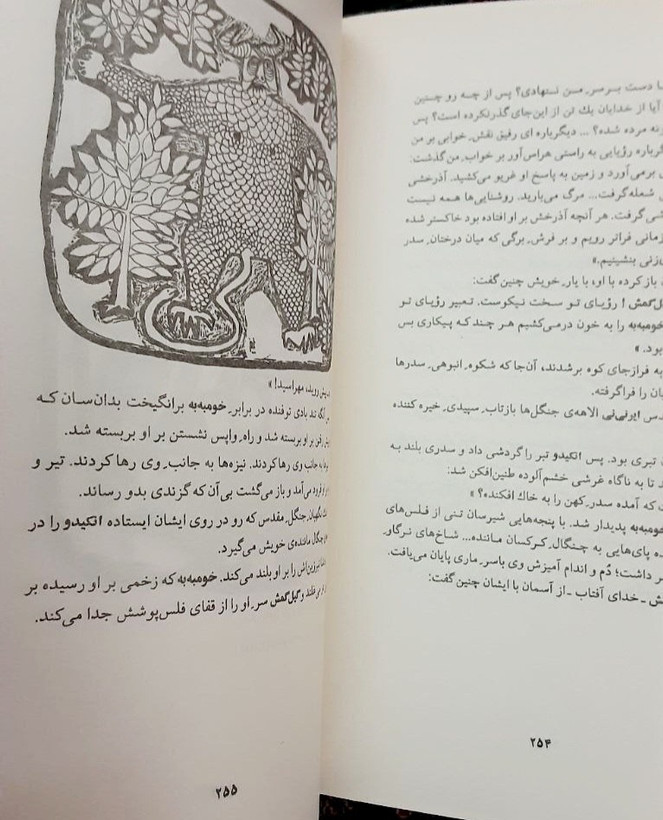 دست بر سرِ من ننهادی؟ پس از چه رو چنین
آیا از خدایان یك تن از این‌جای گذر نکرده است؟ پس
مرده شده؟ ... دیگرباره ای رفیق نقش، خوابی بر من
رؤیایی به راستی هراس‌آور بر خوابِ من گذشت:
برمی‌آورد و زمین به پاسخِ او غریو می‌کشید. آذرخشی
شعله گرفت... مرگ می‌بارید. روشنایی‌ها همه نیست
گرفت. هر آنچه آذرخش بر او افتاده بود خاکستر شده
فراتر رویم و بر فرشِ برگی که میان درختانِ سدر
بنشینیم.»
باز کرده با او، با یارِ خویش چنین گفت:
رؤیای تو سخت نیکوست. تعبیر رؤیای تو
خومبه‌به را به خون درمی‌کشیم هر چند که پیکاری بس
بود.»
به فرازجای کوه برشدند، آن‌جا که شکوهِ انبوهیِ سدرها
را فراگرفته.
ایرنی‌نی الاهه‌ی جنگل‌ها بازتابِ سپیدیِ خیره کننده
تبری بود. پس انکیدو تبر را گردشی داد و سدری بلند به
تا به ناگاه غرشی خشم‌آلوده طنین‌افکن شد:
که آمده سدرِ کهن را به خاك افکنده؟»
خومبه‌به پدیدار شد. با پنجه‌هایی شیرسان تنی از فلس‌های
پای‌هایی به چنگالِ کرکسان مانده... شاخ‌های نرگاو
داشت؛ دُم و اندامِ آمیزشِ وی با سرِ ماری پایان می‌یافت.
ـ خدای آفتاب ـ از آسمان با ایشان چنین گفت:
۲۵۴
روید، مهراسید!»
تند بادی توفنده در برابرِ خومبه‌به برانگیخت بدان‌سان که
رفتن بر او بسته شد و راهِ واپس نشستن بر او بربسته شد.
به جانب وی رها کردند. نیزه‌ها به جانبِ وی رها کردند. تیر و
فرود می‌آمد و باز می‌گشت بی‌آن که گزندی بدو رساند.
نگهبانِ جنگلِ مقدس که رو در روی ایشان ایستاده انکیدو را در
چنگال مانندهٔ خویش می‌گیرد.
را بر او بلند می‌کند. خومبه‌به که زخمی بر او رسیده بر
و گیل‌گمش سرِ او را از قفای فلس‌پوشش جدا می‌کند.
۲۵۵